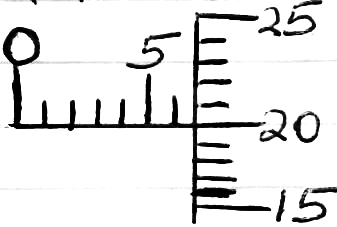 0 5 25
20
15